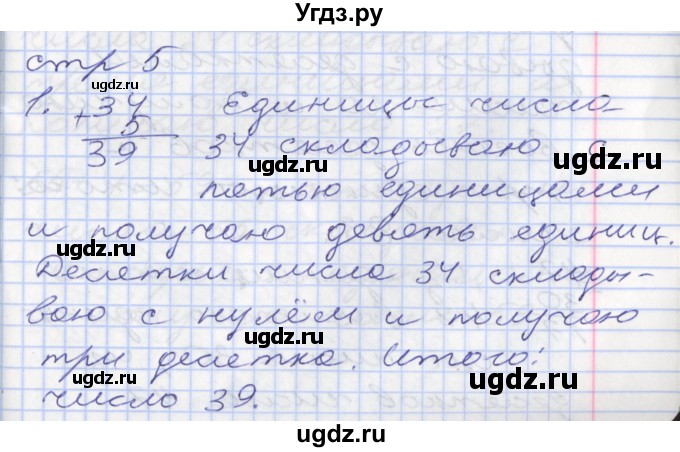 Угдз.ру
стр 5
ugdz.ru
1. 34 Единицы числа
ugdz.ru
+ 5
39 34 складываю с
ugdz.ru
ugdz.ru
пятью единицами
и получаю девять единиц.
ugdz.ru
ugdz.ru
Десятки числа 34 склады-
ваю с нулём и получаю
ugdz.ru
ugdz.ru
три десятка. Итого:
ugdz.ru
число 39.
ugdz.ru
ugdz.ru